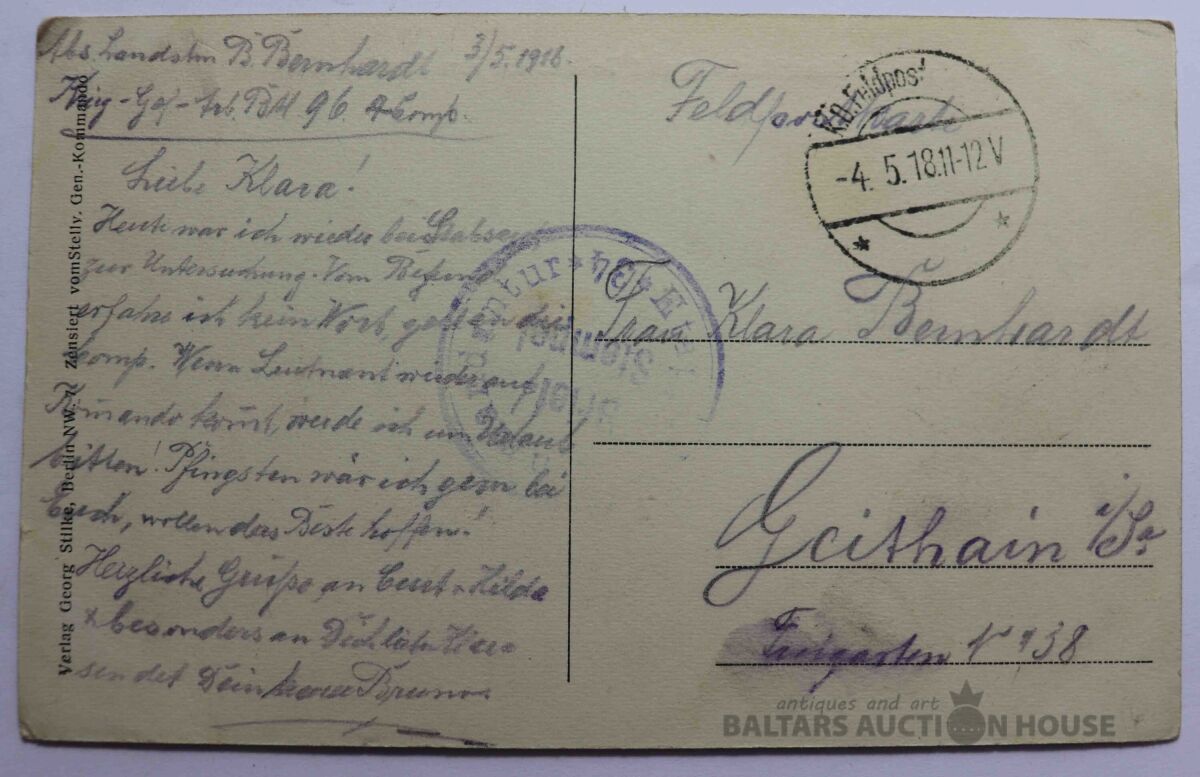 Abs. Landstm B. Bernhardt 3/5. 1918.
Krieg-Gef-Arb. Batl 96 4 Comp.
Liebe Klara!
Heute war ich wieder bei
zur Untersuchung. Vom
erfahre ich kein Wort, die
Comp. Wenn Leutnant wieder auf
komt, werde ich um Urlaub
bitten! Pfingsten wär ich gern bei
Euch, wollen das Beste hoffen!
Herzliche Grüße an Curt u Hilda
besonders an Dich liebe
sendet Dein Bruno
Verlag Georg Stilke, Berlin NW. 7 Zensiert vom Stellv. Gen.-Kommando
Feldpost
K.D. Feldpost
-4. 5. 18. 11-12 V
Frau Klara Bernhardt
Geithain i/Sa
Freigarten No 38
Stempel
Brief
antiques and art
BALTARS AUCTION HOUSE